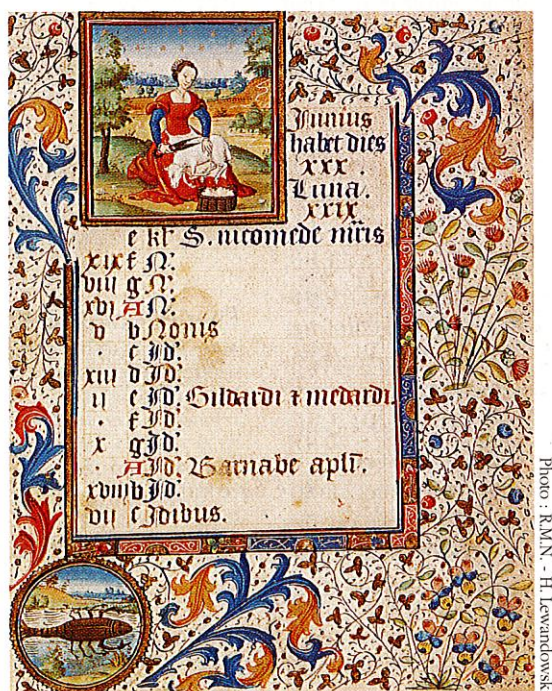 Junius
habet dies
xxx .
Luna.
xxix
e kl' S. nicomede mris
xix f N.
viii g N.
xvi A N.
v b Nonis
. c Jd.
xiii d Jd.
ii e Jd. Gildardi ⁊ medardi.
. f Jd.
x g Jd.
. A Jd. Barnabe apli.
xviii b Jd.
vii c Jdibus.
Photo : R.M.N. - H. Lewandowski